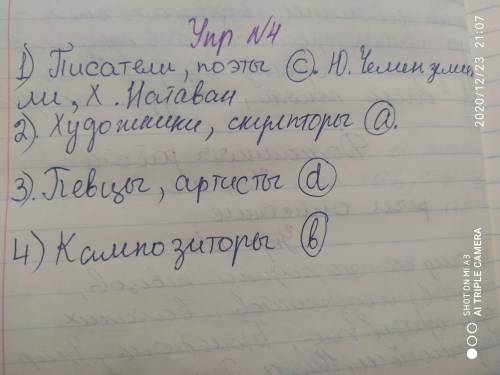 Упр №4
1) Писатели, поэты (c). Ю. Чеменземин
ли, Х. Натаван
2). Художники, скулпторы (a).
3). Певцы, артисты (d)
4) Кампозиторы (b)
2020/12/23 21:07
SHOT ON MI A3
AI TRIPLE CAMERA